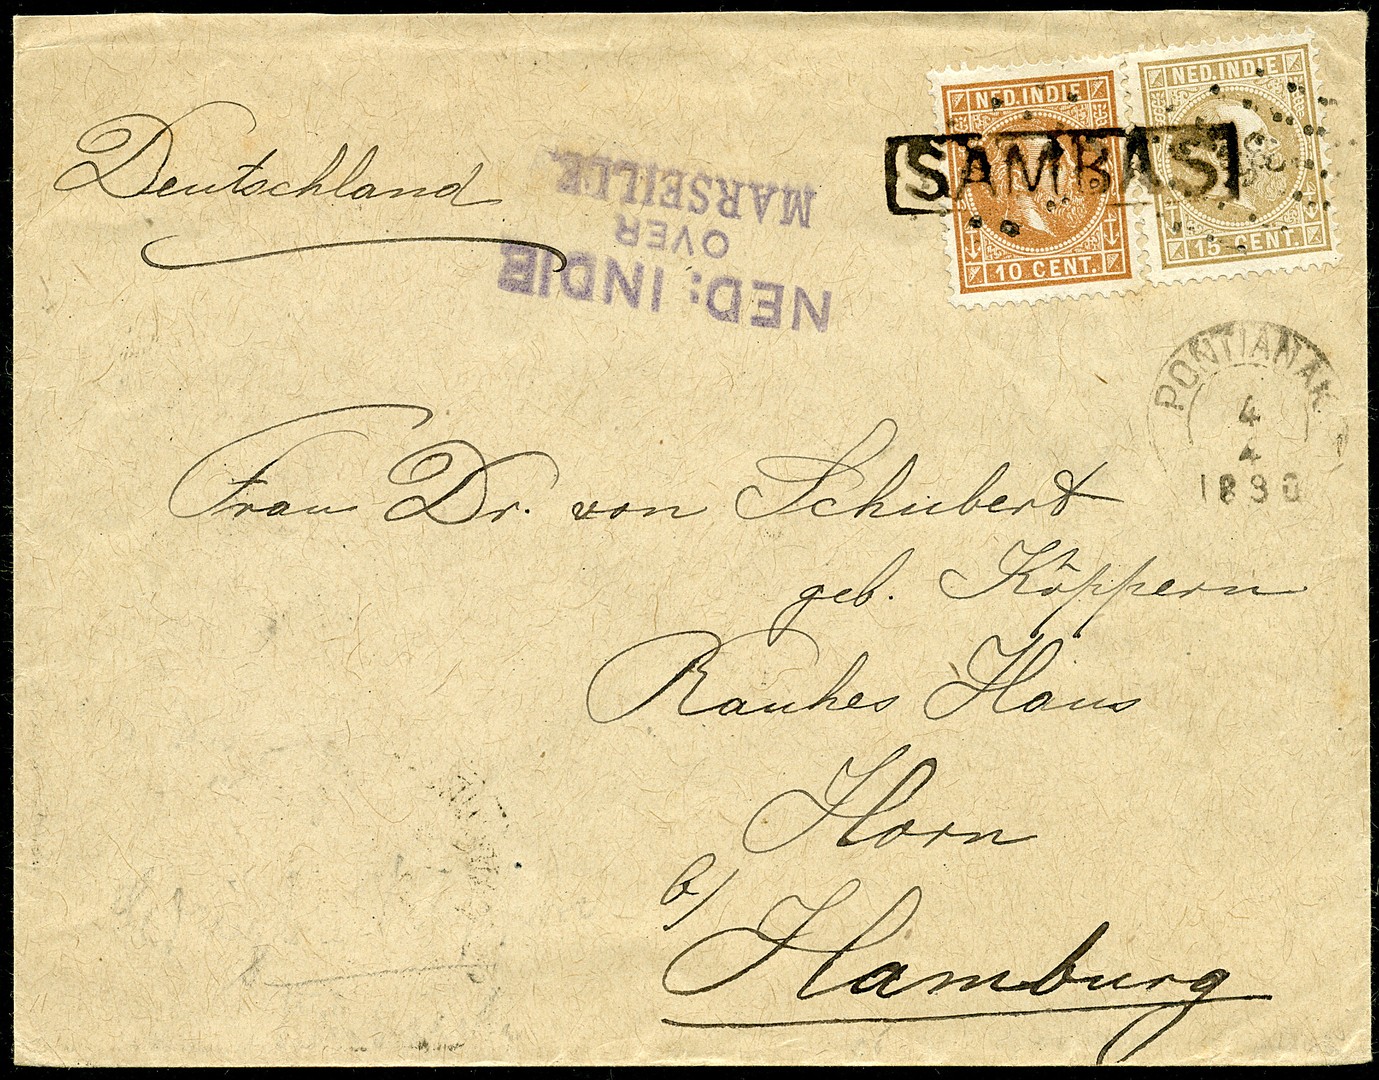 NED. INDIE
10 CENT.
NED. INDIE
15 CENT.
SAMBAS
Deutschland
NED: INDIE
OVER
MARSEILLE.
PONTIANAK
4
4
1890
Frau Dr. von Schubert
geb. Köppern
Rauhes Haus
Horn
b/
Hamburg